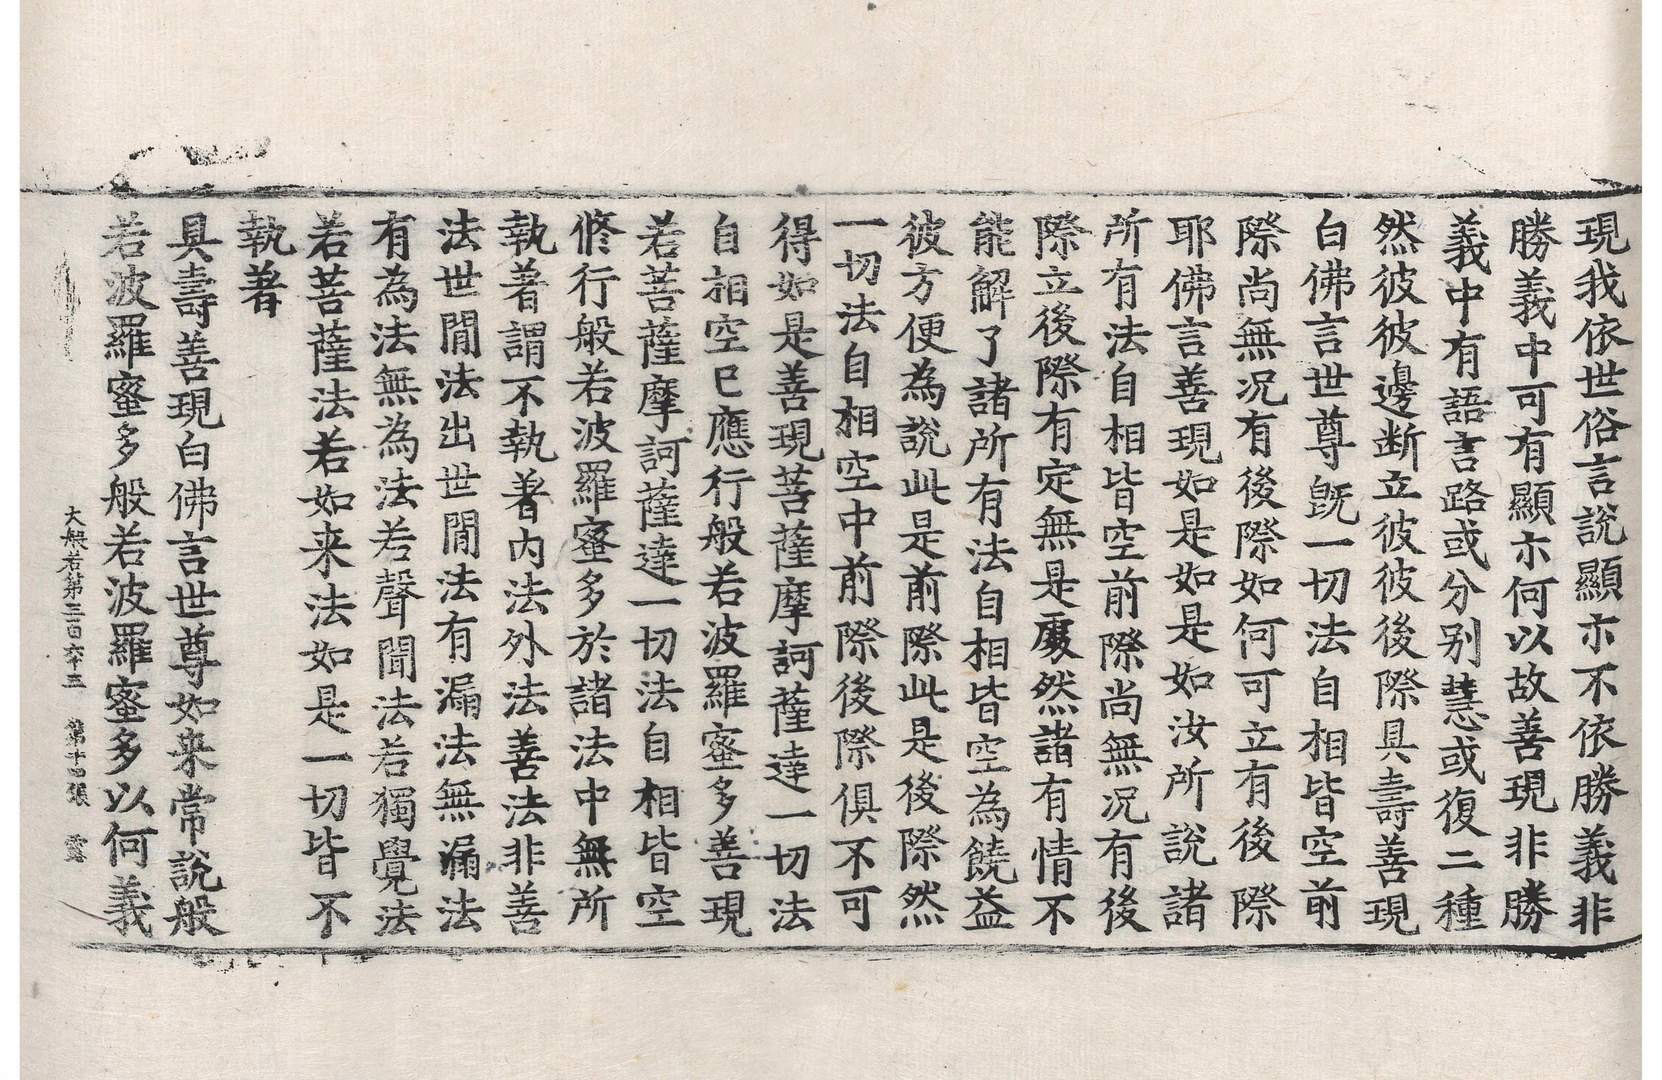 現我依世俗言說顯示不依勝義非
勝義中可有顯示何以故善現非勝
義中有語言路或分別慧或復二種
然彼彼邊断立彼彼後際具壽善現
白佛言世尊旣一切法自相皆空前
際尚無况有後際如何可立有後際
耶佛言善現如是如是如汝所說諸
所有法自相皆空前際尚無况有後
際立後際有定無是處然諸有情不
能解了諸所有法自相皆空為饒益
彼方便為說此是前際此是後際然
一切法自相空中前際後際俱不可
得如是善現菩薩摩訶薩達一切法
自相空已應行般若波羅蜜多善現
若菩薩摩訶薩達一切法自相皆空
修行般若波羅蜜多於諸法中無所
執著謂不執著內法外法善法非善
法世間法出世間法有漏法無漏法
有為法無為法若聲聞法若獨覺法
若菩薩法若如来法如是一切皆不
執著
具壽善現白佛言世尊如来常說般
若波羅蜜多般若波羅蜜多以何義
大般若第三百六十三 第十四張 露